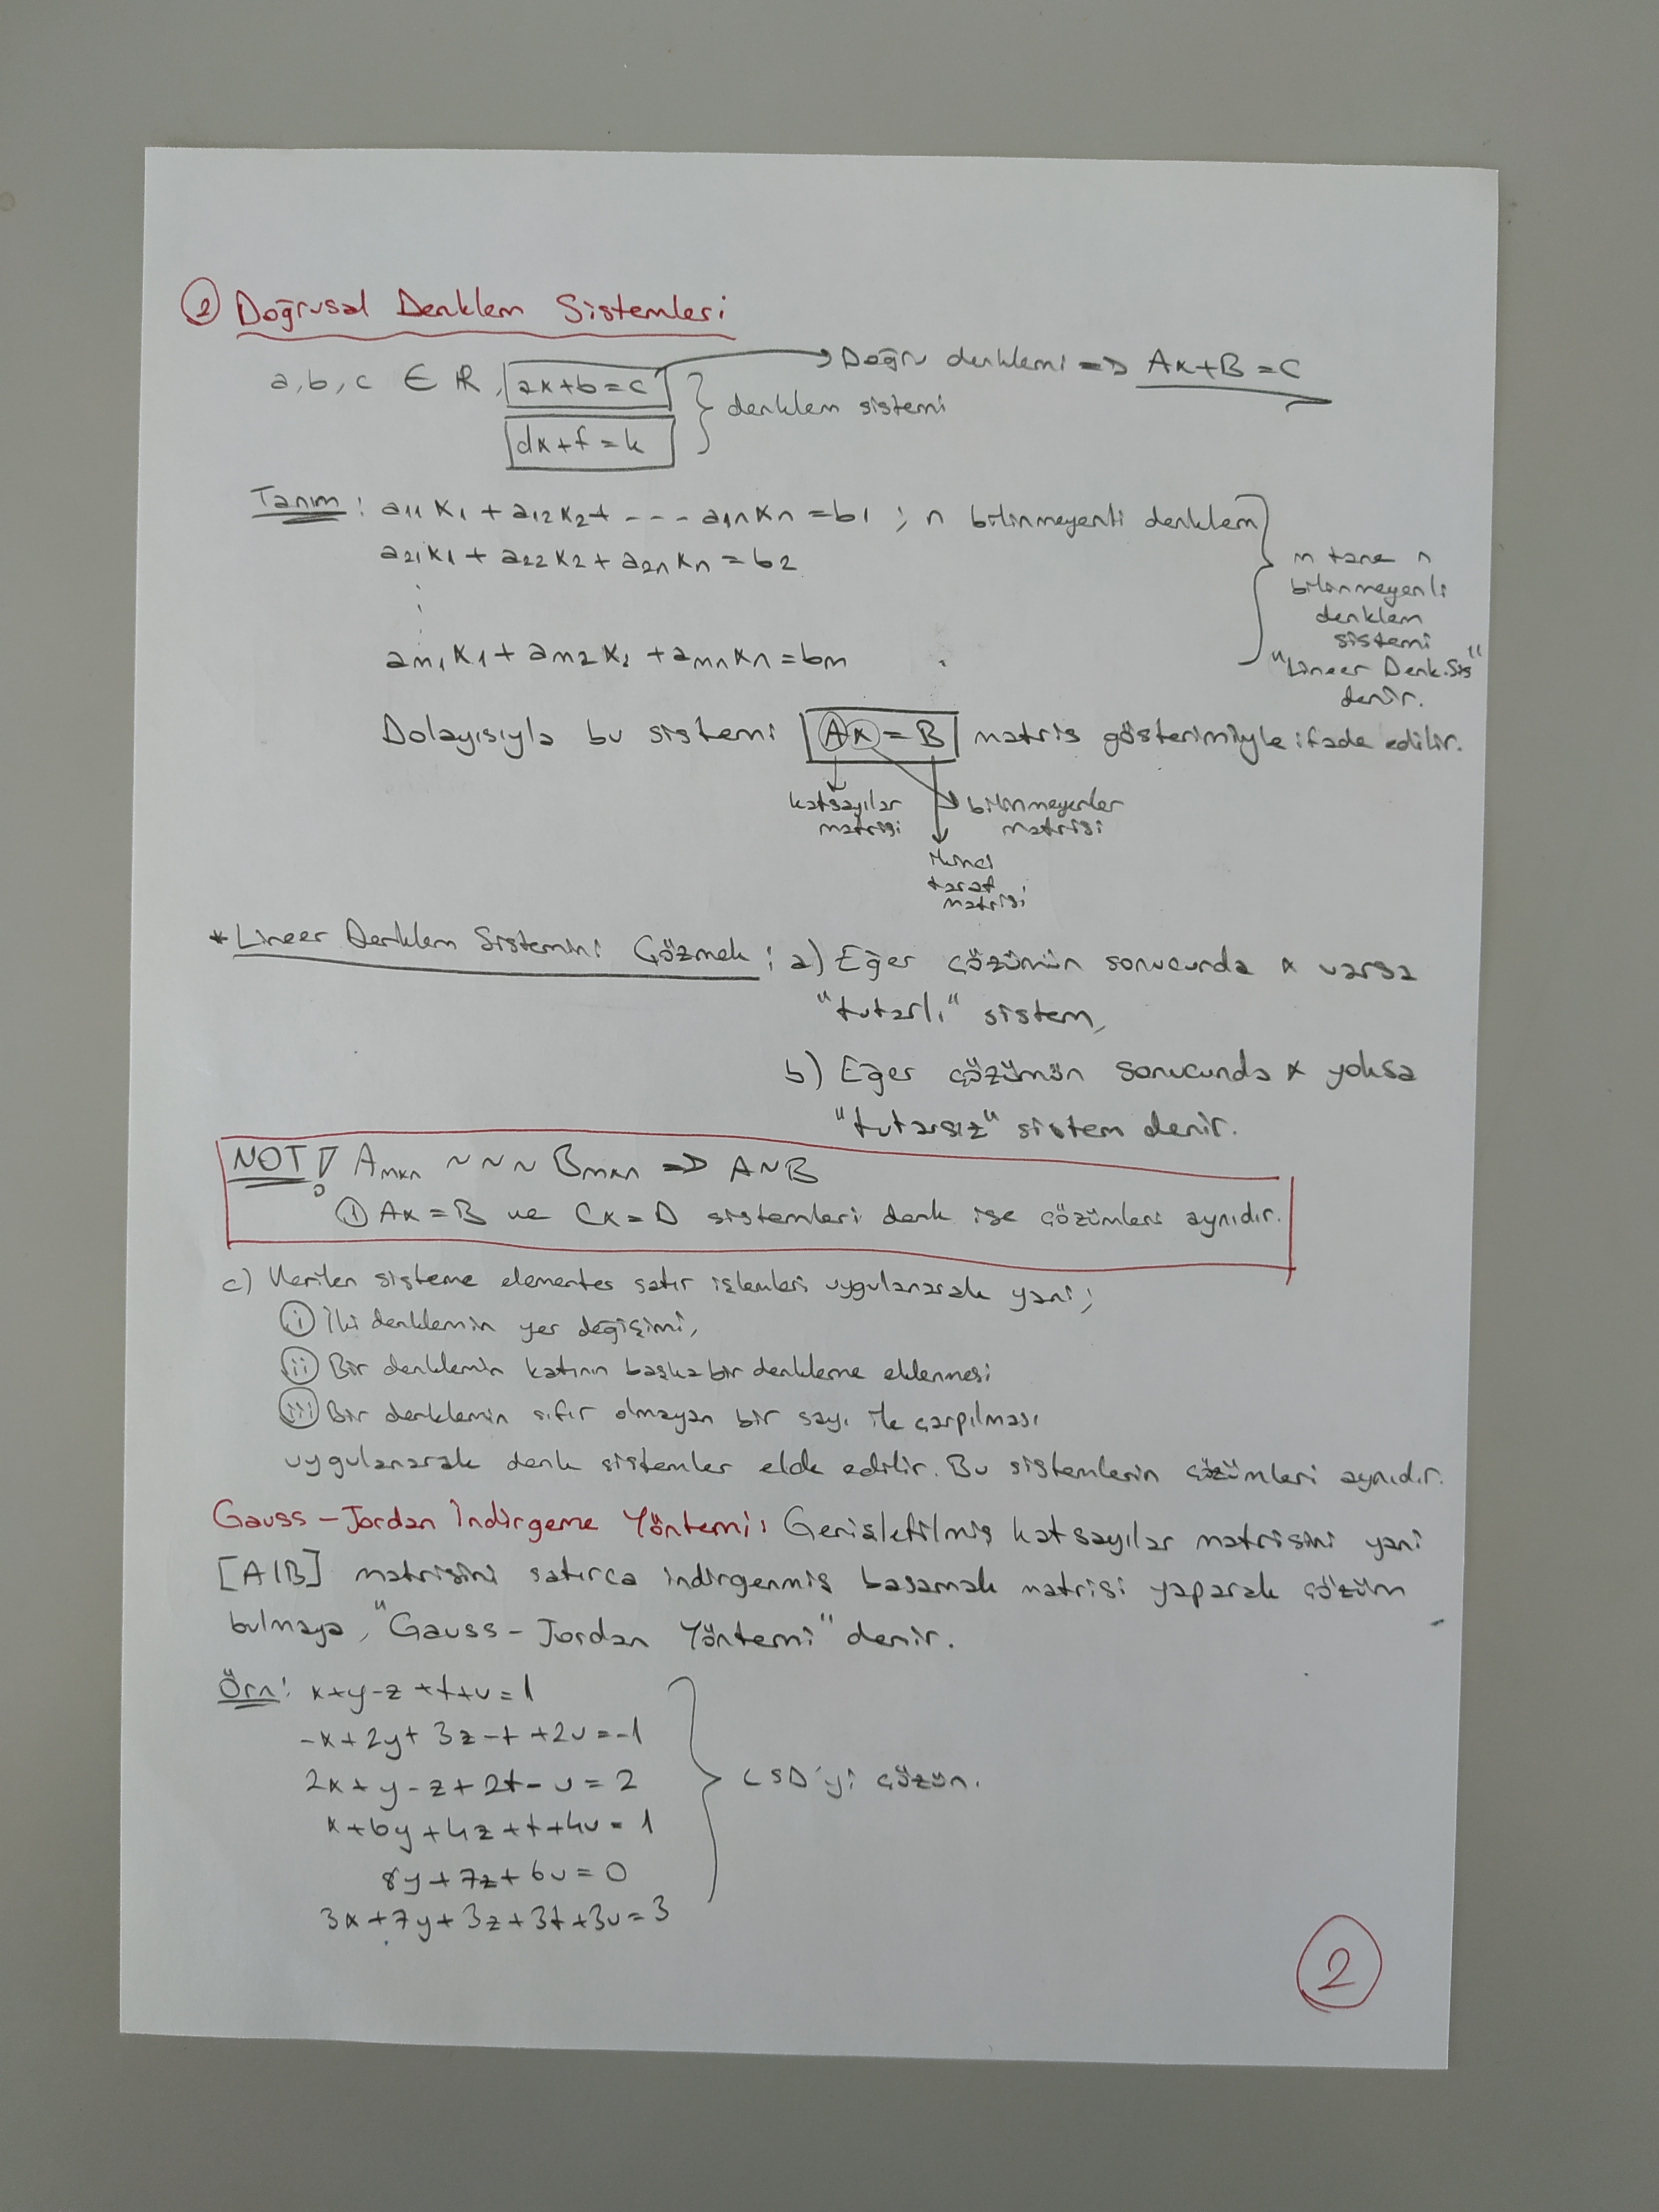 ② Doğrusal Denklem Sistemleri
→ Doğru denklemi ⇒ Ax+B=C
a, b, c ∈ R, ax+b=c
dx+f=k } denklem sistemi
Tanım: a11x1 + a12x2 + --- a1nxn = b1 ; n bilinmeyenli denklem
a21x1 + a22x2 + a2nxn = b2
⋮
am1x1 + am2x1 + amnxn = bm
m tane n
bilinmeyenli
denklem
sistemi
"Lineer Denk.Sis"
denir.
Dolayısıyla bu sistemi Ax = B matris gösterimiyle ifade edilir.
katsayılar
matrisi
bilinmeyenler
matrisi
ikinci
taraf
matrisi
*Lineer Denklem Sistemini Çözmek: a) Eğer çözümün sonucunda x varsa
"tutarlı" sistem,
b) Eğer çözümün sonucunda x yoksa
"tutarsız" sistem denir.
NOT: Amxn ~~~ Bmxn ⇒ A~B
① Ax=B ve Cx=D sistemleri denk ise çözümleri aynıdır.
c) Verilen sisteme elementer satır işlemleri uygulanarak yani;
(i) İki denklemin yer değişimi,
(ii) Bir denklemin katının başka bir denkleme eklenmesi
(iii) Bir denklemin sıfır olmayan bir sayı ile çarpılması
uygulanarak denk sistemler elde edilir. Bu sistemlerin çözümleri aynıdır.
Gauss-Jordan İndirgeme Yöntemi: Genişletilmiş katsayılar matrisini yani
[A|B] matrisini satırca indirgenmiş basamak matrisi yaparak çözüm
bulmaya, "Gauss-Jordan Yöntemi" denir.
Örn: x+y-z+t+u=1
-x+2y+3z-t+2u=-1
2x+y-z+2t-u=2
x+6y+4z+t+4u=1
8y+7z+6u=0
3x+7y+3z+3t+3u=3
LSD'yi çözün.
2